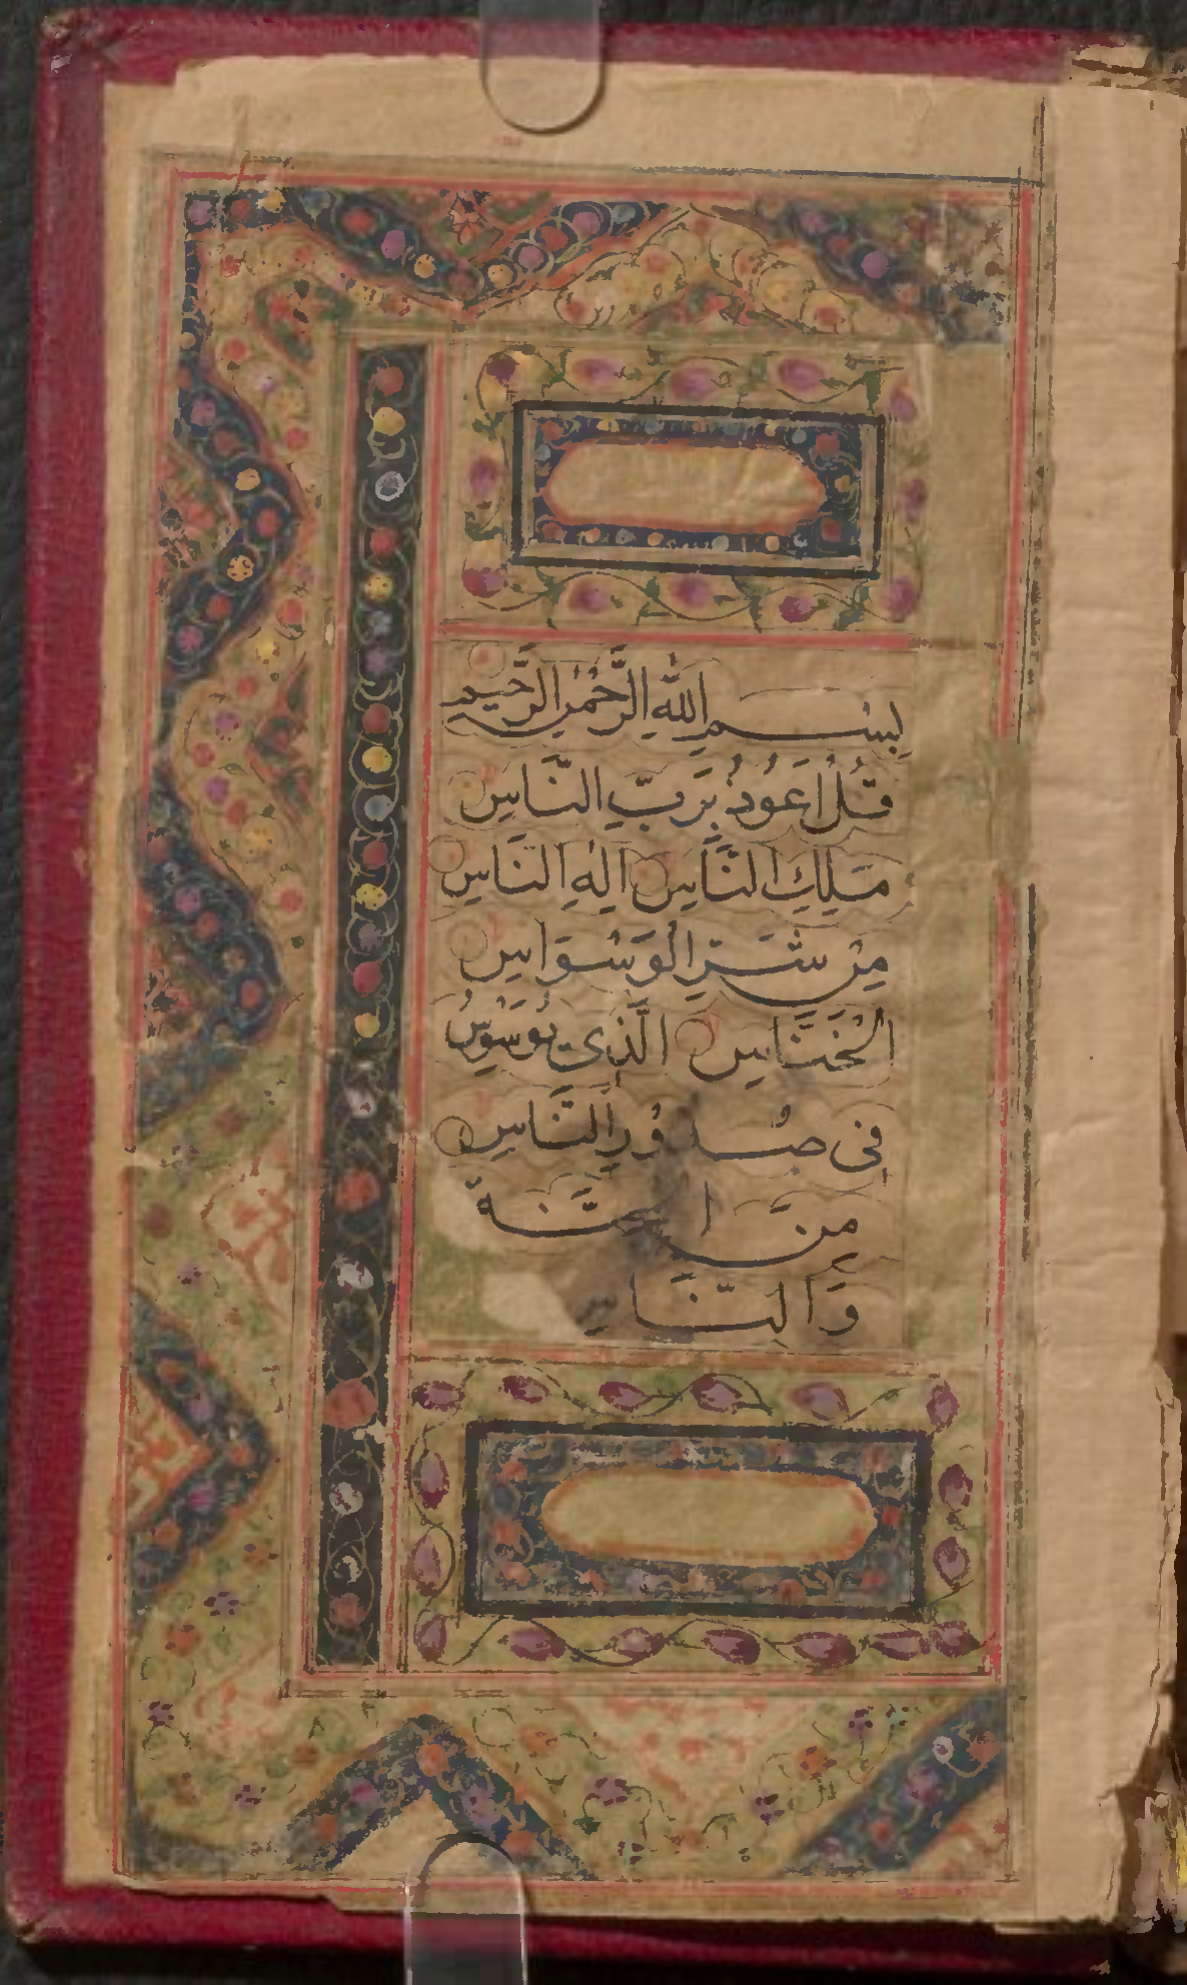 بِسْمِ اللّٰهِ الرَّحْمٰنِ الرَّحِيْمِ
قُلْ اَعُوْذُ بِرَبِّ النَّاسِ
مَلِكِ النَّاسِ اِلٰهِ النَّاسِ
مِنْ شَرِّ الْوَسْوَاسِ
الْخَنَّاسِ الَّذِى يُوَسْوِسُ
فِى صُدُوْرِ النَّاسِ
مِنَ الْجِنَّةِ
وَالنَّاسِ